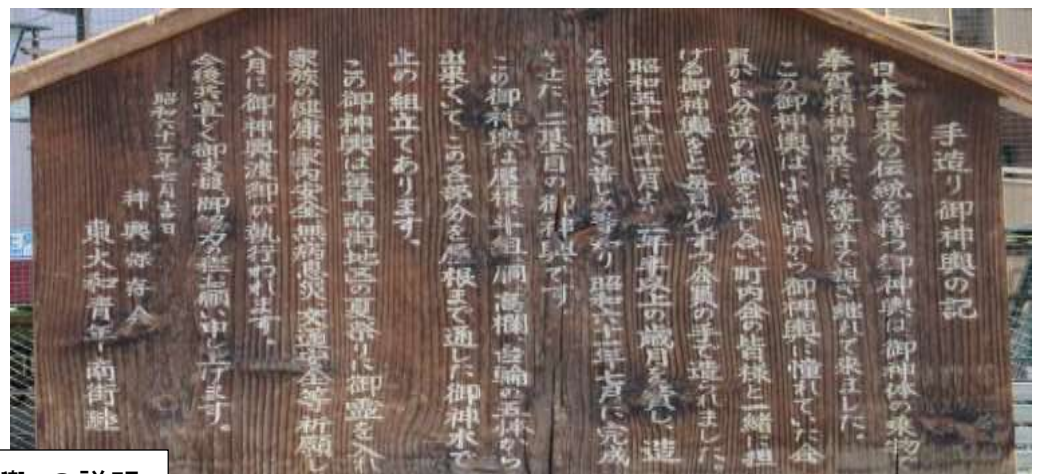 手造り御神輿の記
日本古来の伝統を持つ御神輿は御神体の乗物
奉賀精神の基に、
手で担ぎ継れて来ました。
この御神輿は小さい頃から御神輿に憧れていた会
員が自分達のお金を出し合い、町内会の皆様と一緒に担
げる御神輿をと一台づつ会員の手で造られました
昭和五十八年十月より二年半以上の歳月を費し、造
る楽しさ難しさ苦しさを
昭和六十一年七月に完成
された、二基目の御神輿です。
この御神輿は屋根、斗組、胴、高欄、台輪の五体から
出来ていてこの各部分を屋根まで通した御神木で
止の組立てあります。
この御神輿は毎年南街地区の夏祭りに御霊を入れ
家族の健康、家内安全、無病息災、交通安全等を祈願し
八月に御神輿渡御が執行われます。
今後共宜しく御支援、御協力の程お願い申し上げます。
昭和六十一年七月吉日
神輿保存会
東大和青年南街
の説明